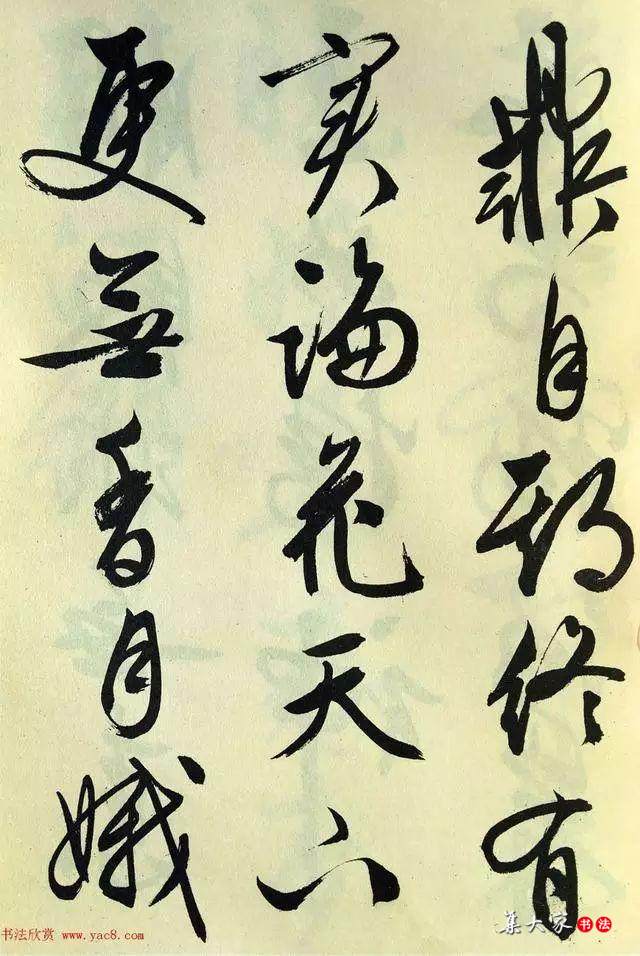 鼎自期終有
實論花天下
更無香月娥
书法欣赏 www.yac8.com
集大家书法